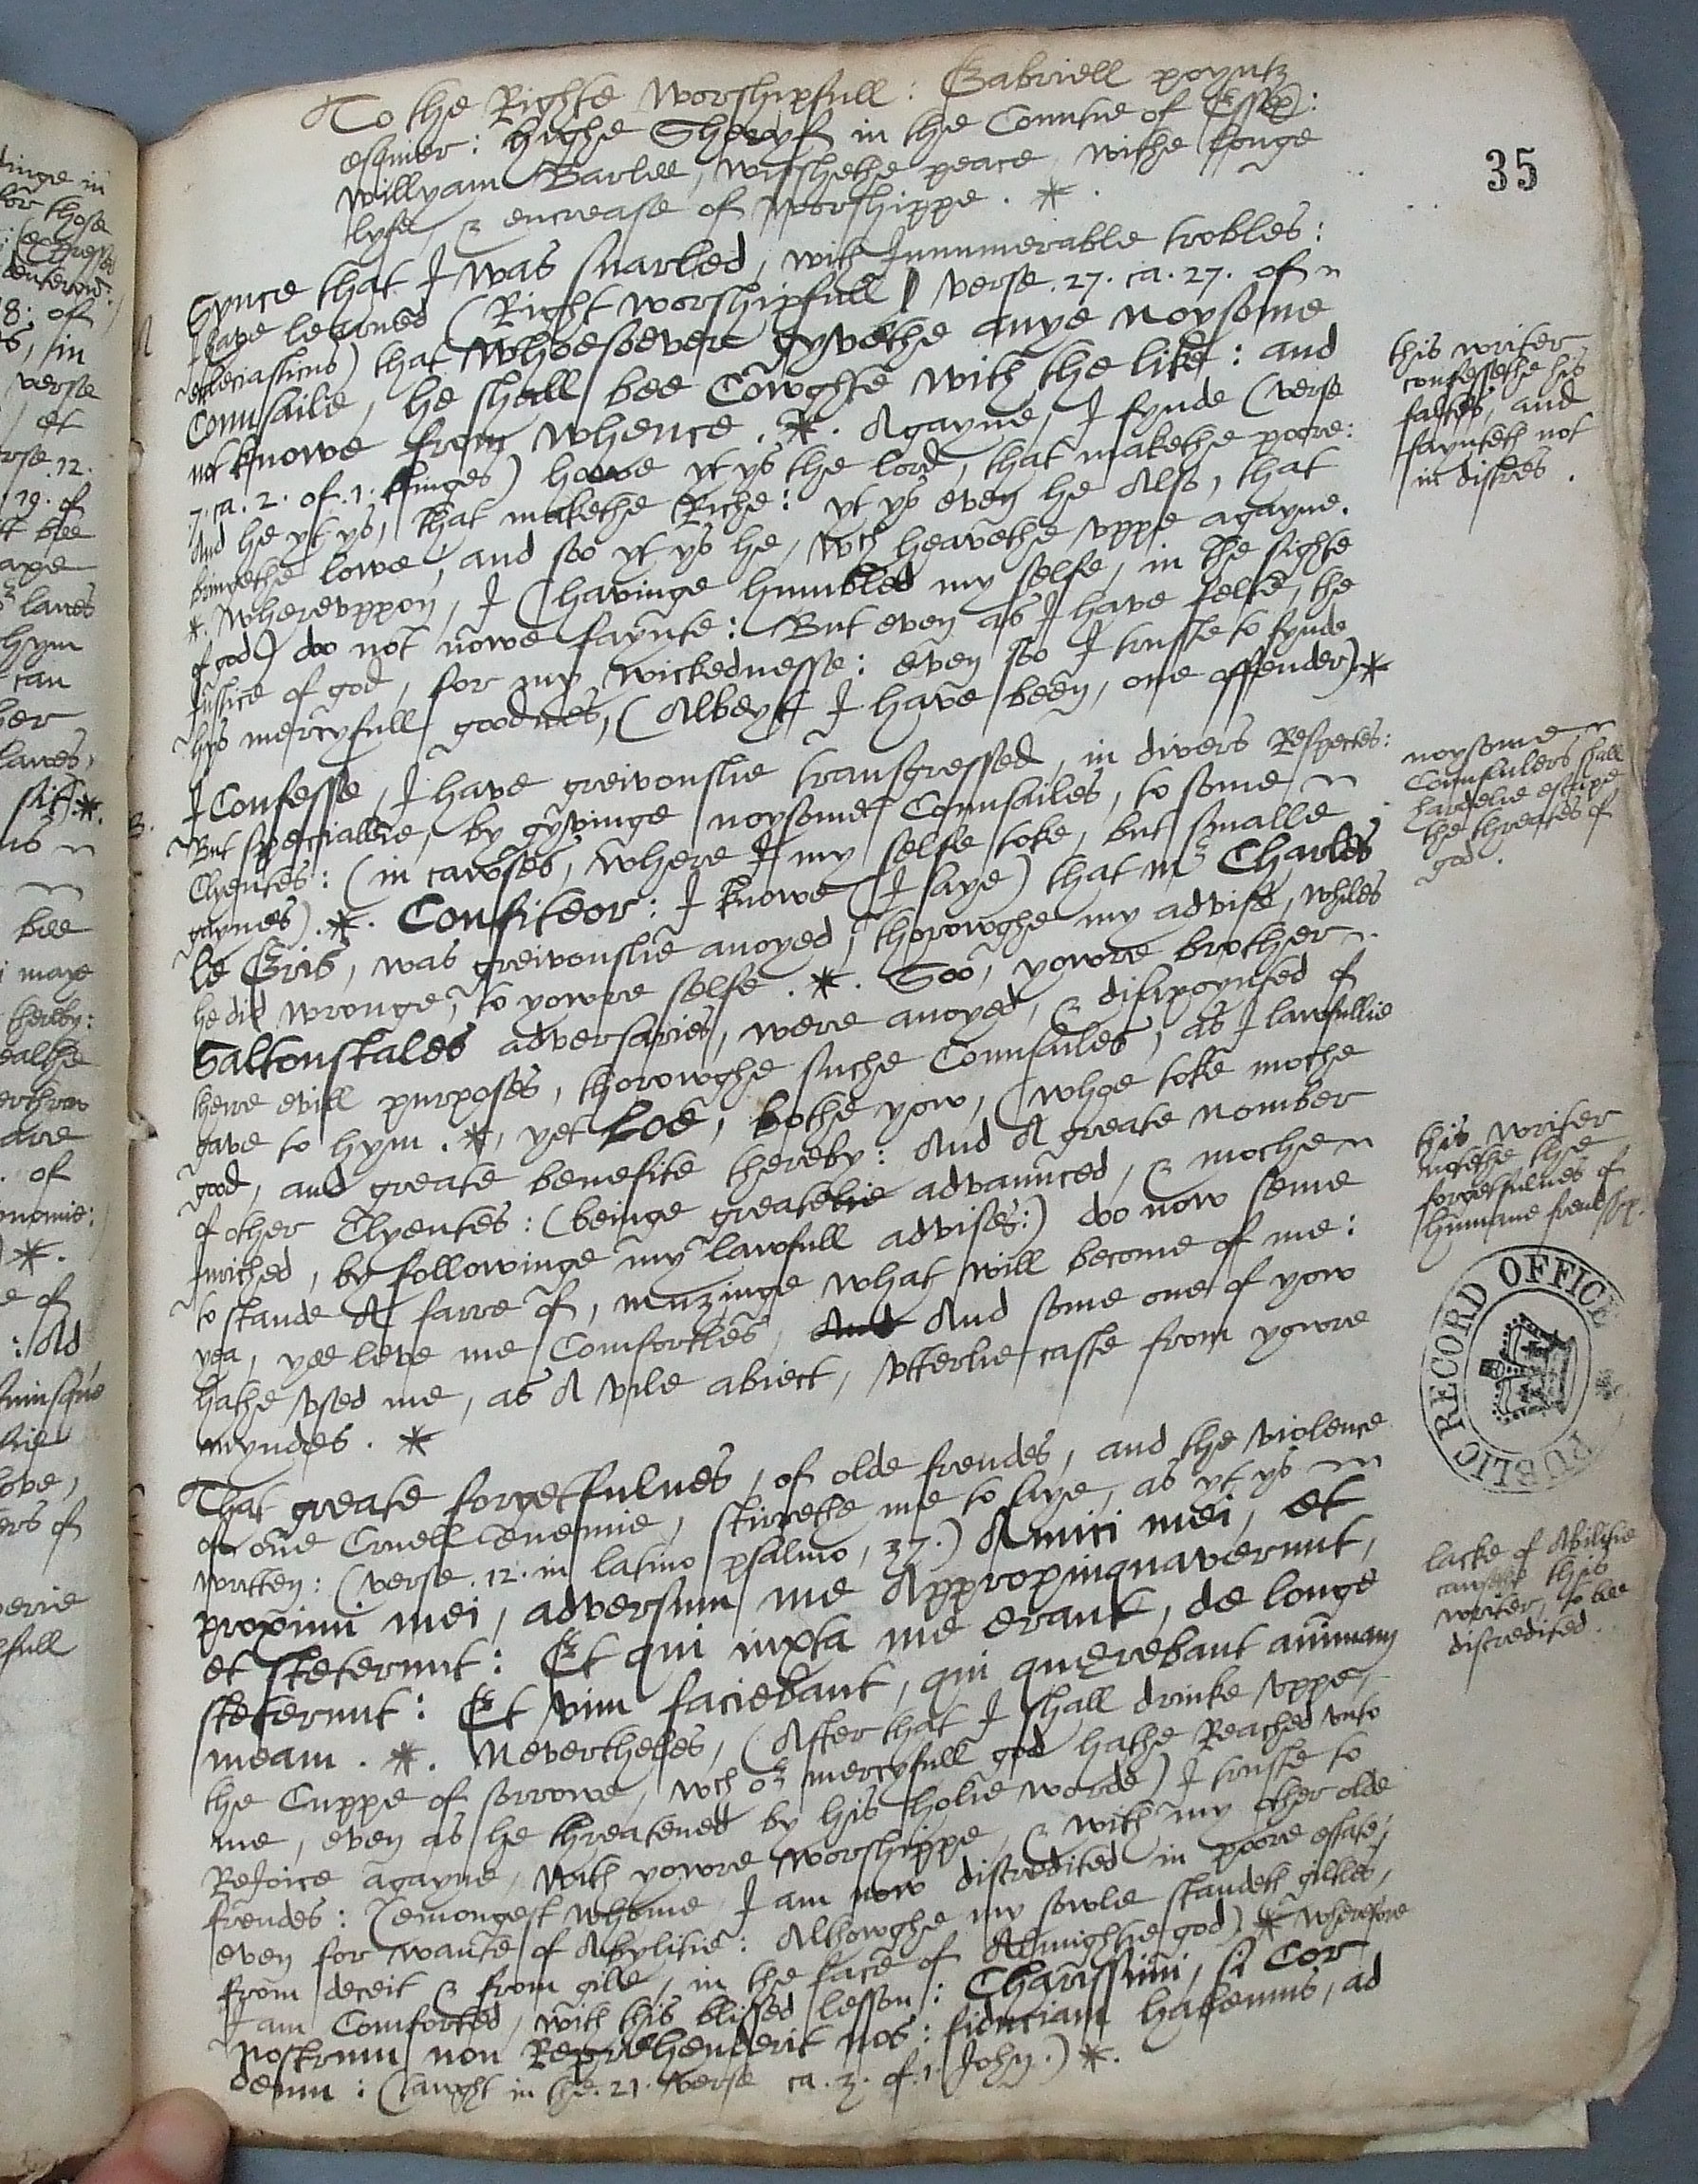 To the Righte worshipfull: Gabriell poyntz
esquier: highe Sheryf in the Countie of Essex:
willyam Barlee, wissheth peace, withe longe
lyfe, & encrease of worshippe. *.
35
Synce that I was snarled, with Innumerable trobles:
I have learned (Right worshipfull, verse. 27. ca. 27. of
ecclesiasticus) that whoesoever gyvethe anye noysome
Counsaile, he shall bee Cowghte with the like: and
not knowe from whence. *. Agayne, I fynde (verse
7. ca. 2. of. 1. kinges) howe yt ys the lord, that makethe poore:
And he yt ys, that makethe Riche: yt ys even he Also, that
bringethe lowe, and soo yt ys he, wch heavethe uppe agayne.
*. wherevppon, I (havinge humbled my selfe, in the sighte
of god) doo not nowe faynte: But even as I have felte, the
Justice of god, for my wickednesse: even soo I truste to fynde
hys mercyfull goodnes, (Albeyt I have been, one offender) *
this writer
confessethe his
faltes, and
faynteth not
in distres.
I Confesse, I have greivouslie transgressed, in divers Respectes:
But speciallie, by gyvinge noysome Counsailes, to some
Clyentes: (in cawses, where I my selfe toke, but smalle
gaynes). *. Confiteor: I knowe (I saye) that mr Charles
le Gris, was greivouslie anoyed, thorowghe my advise, whiles
he did wronge, to yowre selfe. *. Soo, yowre brother
Saltonstales adversaries, were anoyed, & disapoynted of
there evill purposes, thorowghe suche Counsailes, as I lawfullie
gave to hym. *, yet Loe, bothe yow, (whoe toke moche
good, and greate benefite thereby: And A greate nomber
of other Clyentes: (beinge greatelie advaunced, & moche
inriched, by followinge my lawfull advises:) doo now seme
to stande A farre of, muzinge what will become of me:
yea, yee leve me Comfortles, And And some one of yow
hathe vsed me, as A vile abiect, vtterlie caste from yowre
myndes. *
noysome
Counsailers shall
hardelie escape
the threates of
god.
this writer
notethe the
forgetfulnes of
humane frendship.
PUBLIC RECORD OFFICE
That greate forgetfulnes, of olde frendes, and the violence
of one Cruell enemie, stirrethe me to saye, as yt ys
written: (verse. 12. in latino psalmo, 37.) Amici mei, et
proximi mei, adversum me Appropinquaverunt,
et steterunt: Et qui iuxta me erant, de longe
steterunt: Et vim faciebant, qui querebant animam
meam. *. Neverthelees, (After that I shall drinke vppe,
the Cuppe of sorrowe, wch or mercyfull god hathe Reached vnto
me, even as he threatened by his holie worde) I truste to
Rejoice agayne, with yowre worshippe, & with my other olde
frendes: (emongest whome I am now discredited in poore estate,
even for wante of Abylitie: Althowghe my sowle standeth giltles,
from deceit & from gile, in the face of Almightie god) * wherefore
I am Comforted, with this blissed lesson: Charissimi, si Cor
nostrum non Reprehenderit nos: fiduciam habemus, ad
deum: (tawght in the. 21. verse ca. 3. of. 1. John.) *.
lacke of Abilitie
causethe this
writer, to bee
discredited.